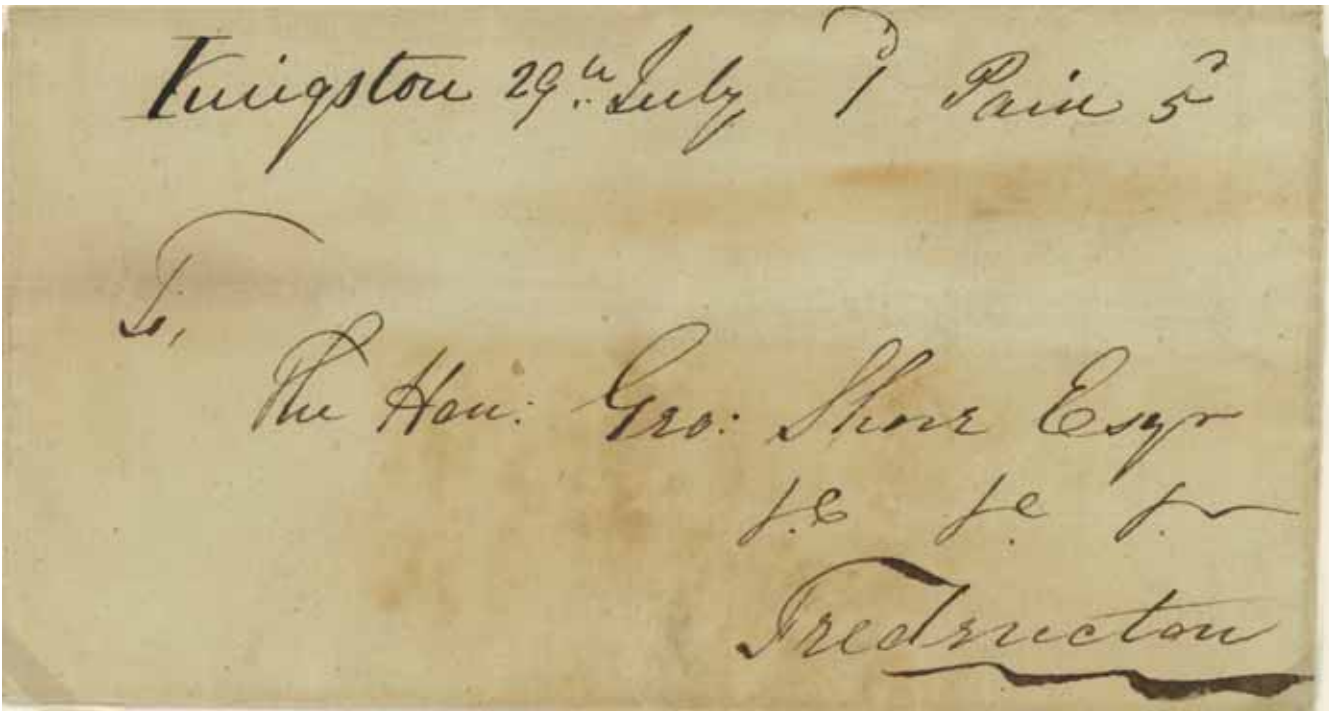 Kingston 29th July Paid 5d
To,
The Hon: Geo: Shore Esqr
&c &c &c
Fredericton